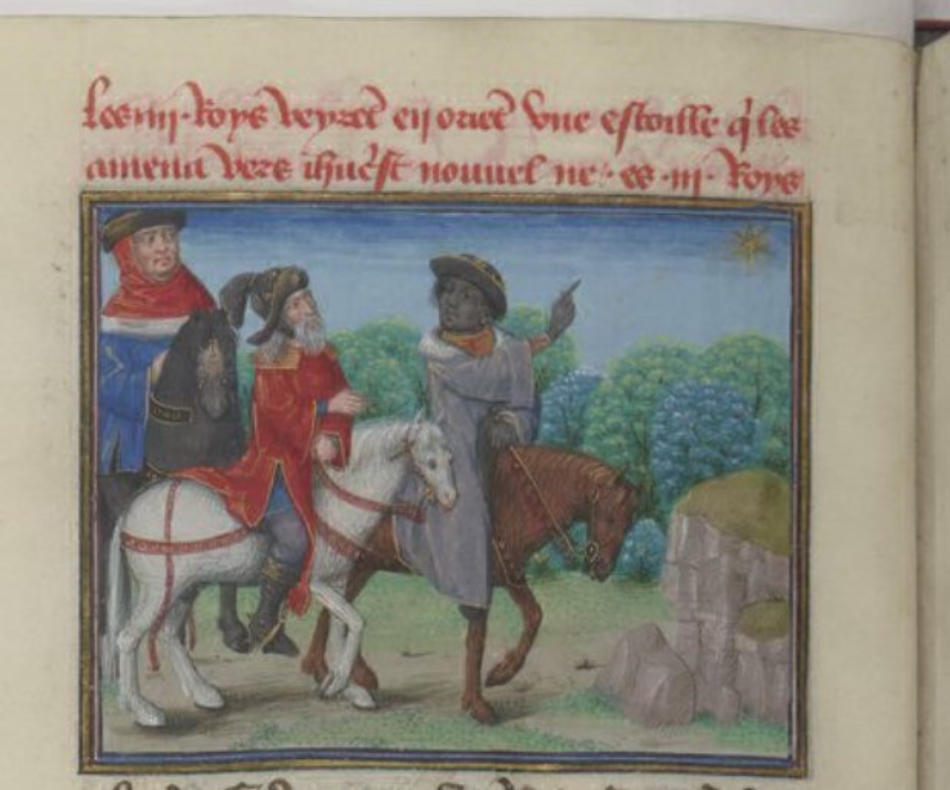 les iii Roys veyret en oriet vne estoille q̃ les
amena vers ihuc̃st nouuel ne · es · iii · Roys